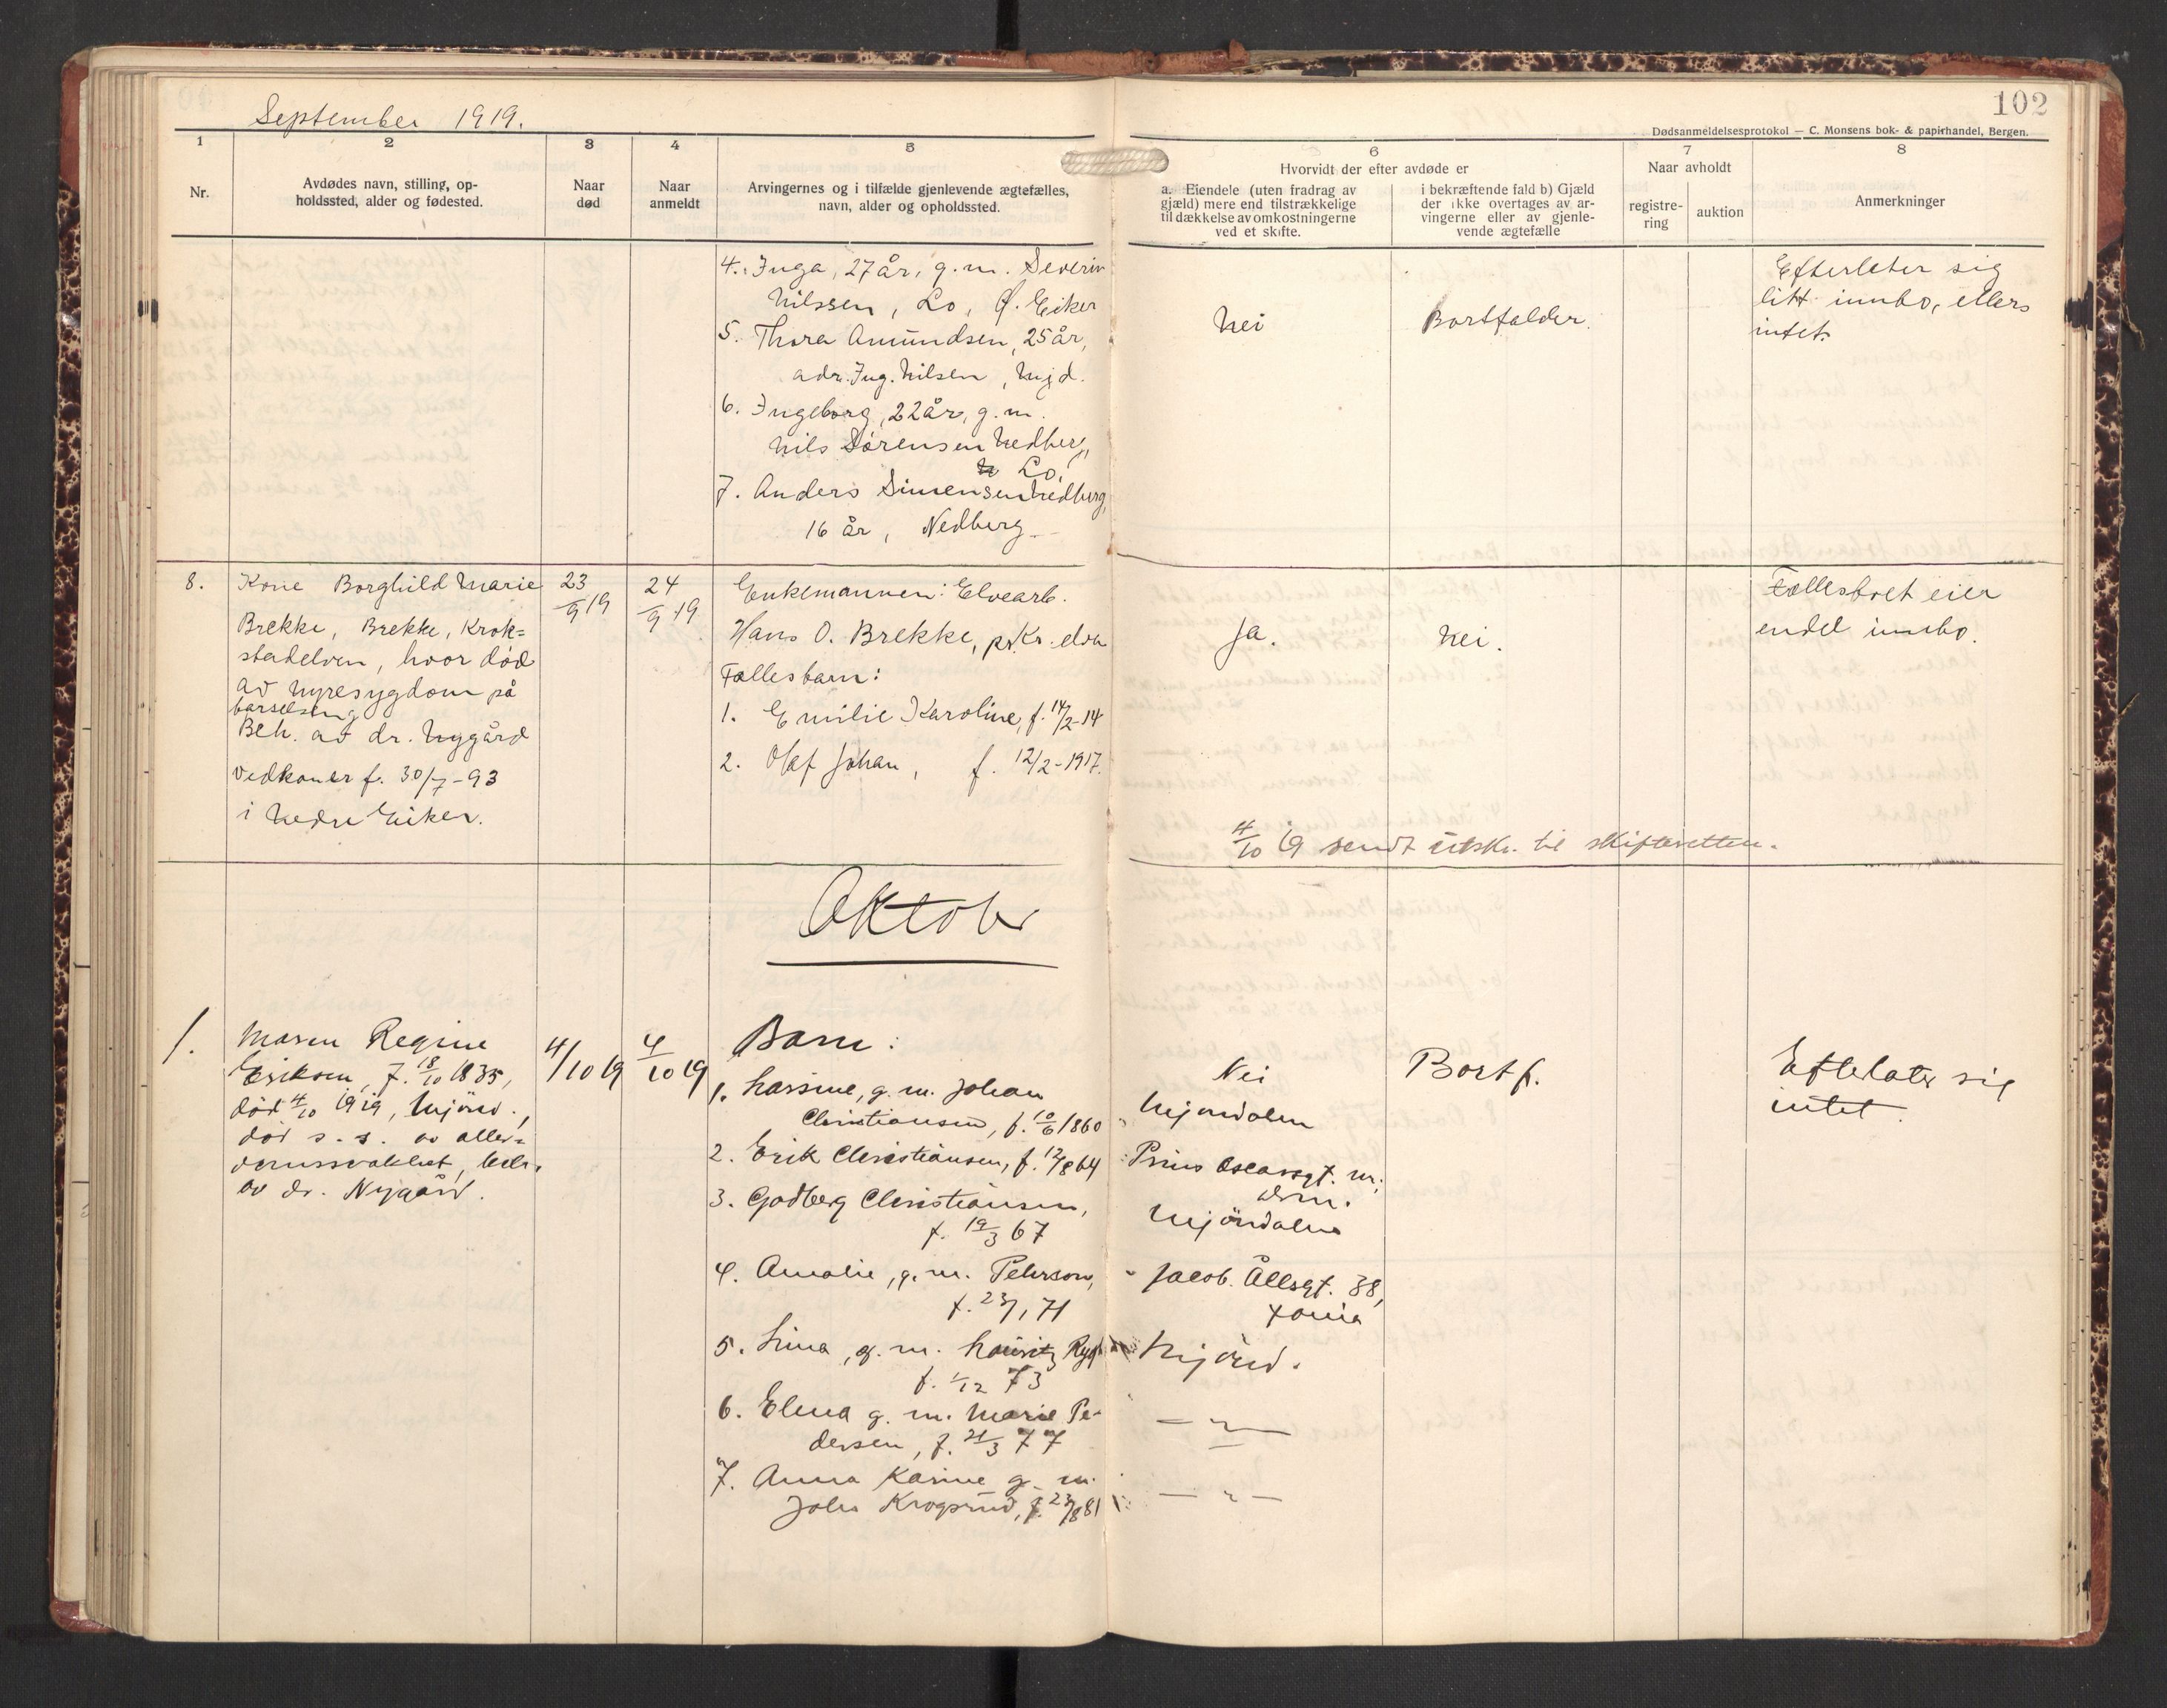 September 1919.
102
Dødsanmeldelsesprotokol — C. Monsens bok- & papirhandel, Bergen.
1
2
3
4
5
6
7
8
Nr.
Avdødes navn, stilling, op-
holdssted, alder og fødested.
Naar
død
Naar
anmeldt
Arvingernes og i tilfælde gjenlevende ægtefælles,
navn, alder og opholdssted.
Hvorvidt der efter avdøde er
a. Eiendele (uten fradrag av
gjæld) mere end tilstrækkelige
til dækkelse av omkostningerne
ved et skifte.
i bekræftende fald b) Gjæld
der ikke overtages av ar-
vingerne eller av gjenle-
vende ægtefælle
Naar avholdt
registre-
ring
auktion
Anmerkninger
4. Inga, 27 år, g.m. Severin
Nilssen, Lo, Ø. Eiker
5. Thora Amundsen, 25 år,
adr. Ing. Nilsen, Mjd.
6. Ingeborg, 22 år, g.m.
Nils Sørensen Nedberg,
Lo,
7. Anders Simensen Nedberg,
16 år, Nedberg
Nei
Bortfalder.
Efterlater sig
litt innbo, ellers
intet.
8.
Kone Borghild Marie
Brekke, Brekke, Krok-
stadelven, hvor død
av nyresygdom på
barselseng
Beh. av dr. Nygård
Vedkom. er f. 30/7-93
i Nedre Eiker.
23/9 19
24/9 19
Enkemannen: Elvearb.
Hans O. Brekke, pr. Kr.elva
Fællesbarn:
1. Emilie Karoline, f. 14/2-14
2. Olaf Johan, f. 12/2-1917.
Ja.
Nei.
Fællesboet eier
endel innbo.
4/10 19 sendt utskr. til skifteretten.
Oktober
1.
Maren Regine
Eriksen, f. 18/10 1835,
død 4/10 1919, Mjönd.,
död s. s. av aller-
domssvakhet, beh.
av dr. Nygård.
4/10 19
4/10 19
Barn:
1. Lassine, g. m. Johan
Christiansen, f. 10/6 1860
Mjøndalen
2. Erik Christiansen, f. 12/8 64
Prins Oscarsgt. nr.
Drm.
3. Godberg Christiansen,
f. 19/3 67
Mjöndalen
4. Amalie, g. m. Peterson,
f. 23/1 71
Jacob Ållsgt. 38,
Xania
5. Lina, g. m. Lauritz Rygh
f. 1/12 73
Mjönd.
6. Elena g. m. Marie Pe-
dersen, f. 21/3 77
— " —
7. Anna Karine g. m.
John Krogsrud, f. 23/8 81
— " —
Nei
Bortf.
Efterlater sig
intet